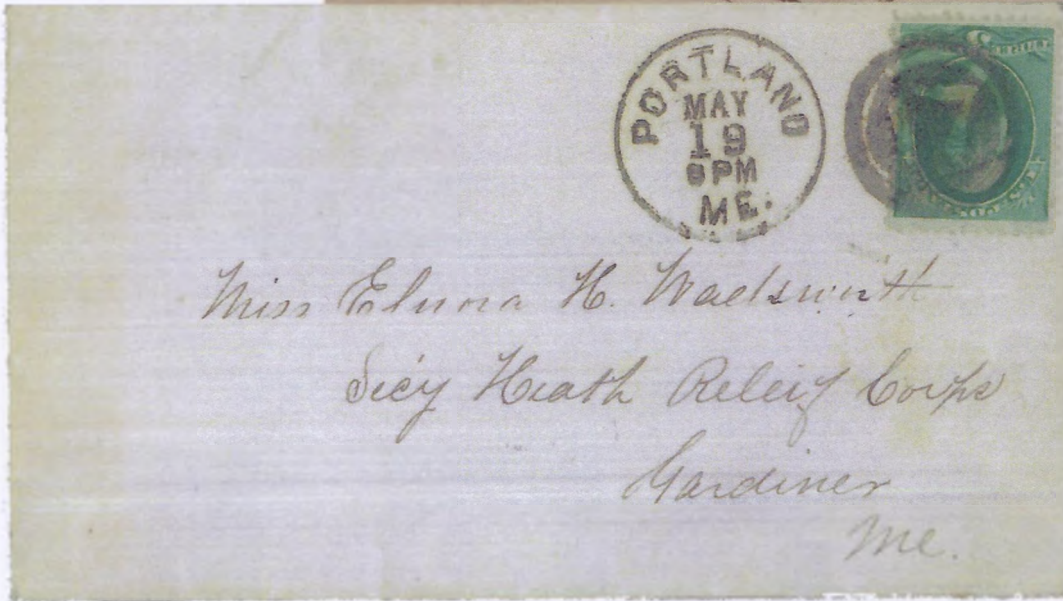 PORTLAND
MAY
19
8PM
ME.
Miss Elmora H. Wadsworth
Secy Heath Releif Corps
Gardiner
Me.